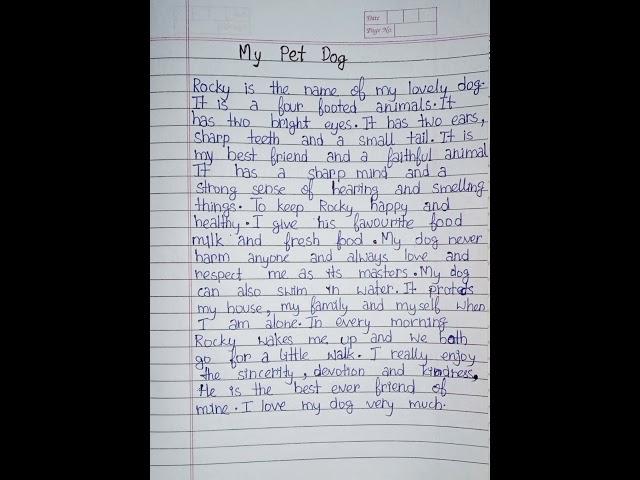 Date
Page No.
My Pet Dog
Rocky is the name of my lovely dog.
It is a four footed animals. It
has two bright eyes. It has two ears,
sharp teeth and a small tail. It is
my best friend and a faithful animal
It has a sharp mind and a
strong sense of hearing and smelling
things. To keep Rocky happy and
healthy. I give his favourite food
milk and fresh food. My dog never
harm anyone and always love and
respect me as its masters. My dog
can also swim in water. It protects
my house, my family and myself when
I am alone. In every morning
Rocky wakes me up and we both
go for a little walk. I really enjoy
the sincerity, devotion and kindness,
He is the best ever friend of
mine. I love my dog very much.